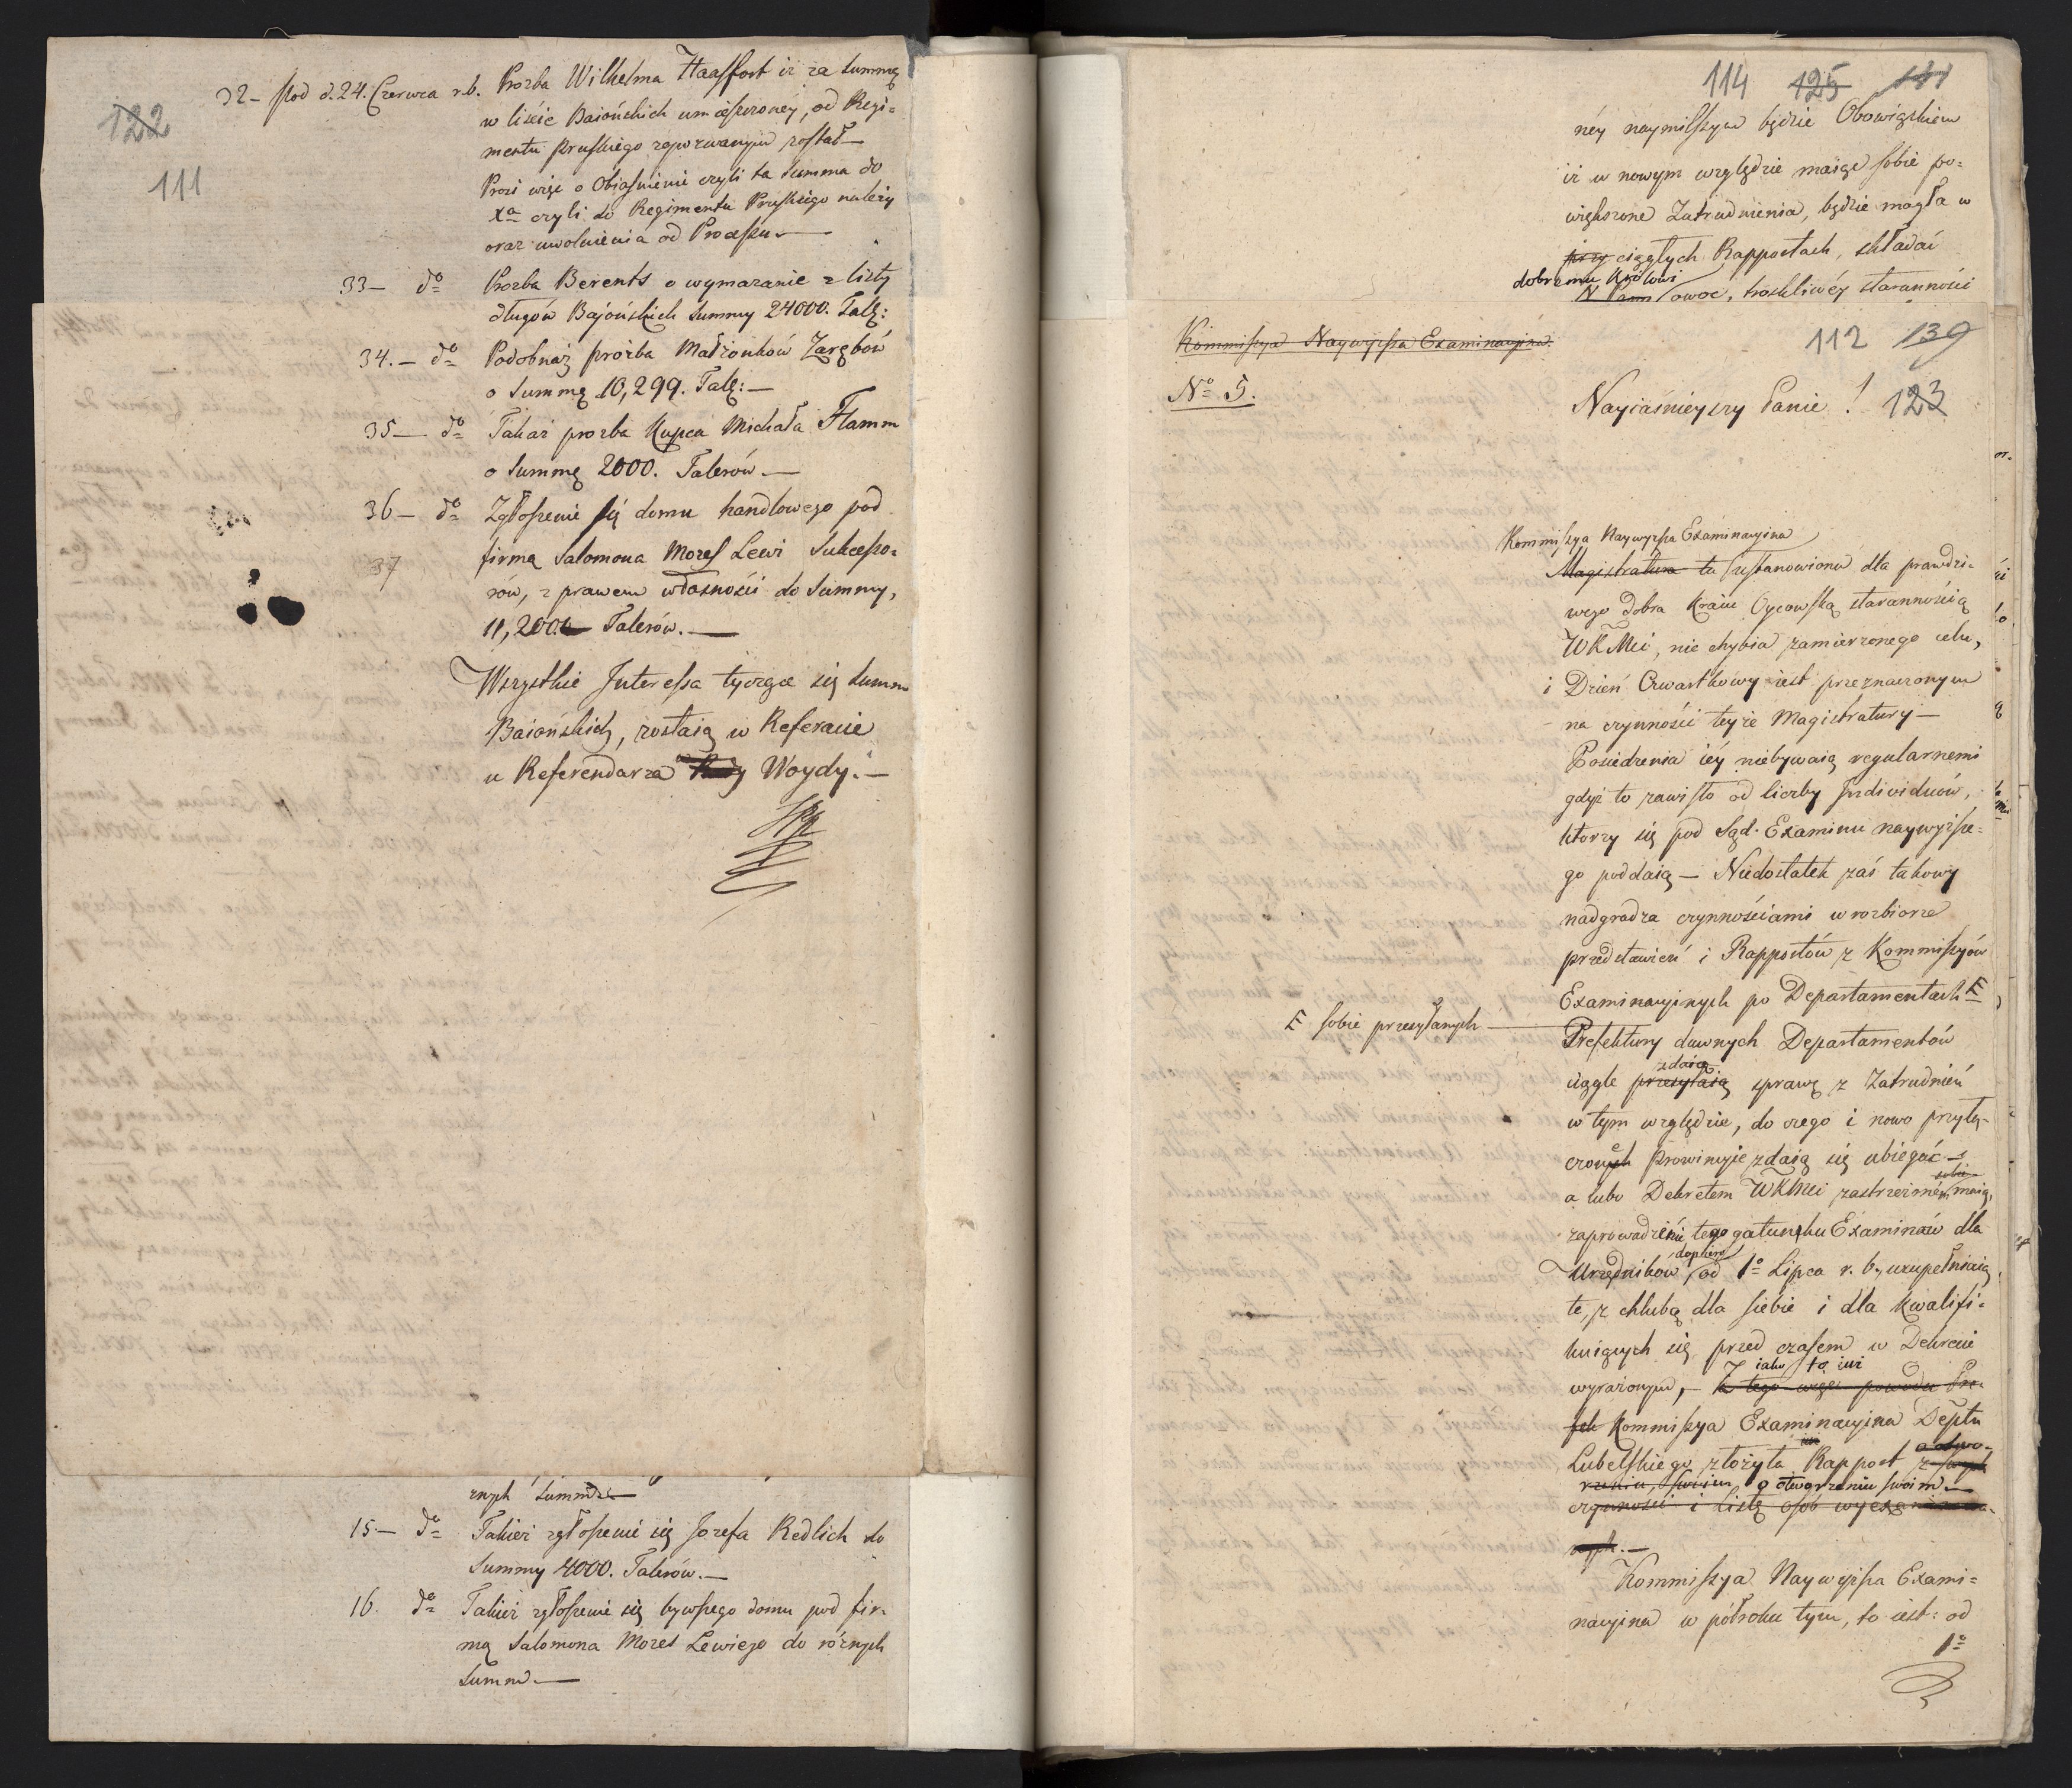 122
111
32 – Pod d. 24. Czerwca r.b. Prozba Wilhelma Haasfort iż za Summę
w liście Baiońskich umieszczoney, od Regi=
mentu Pruskiego zapozwanym został –
Prosi więc o Obiasnienie czyli ta Summa do
Xa czyli do Regimentu Pruskiego należy
oraz uwolnienia od Processu. –
33 – do Prozba Berents o wymazanie z listy
długów Bajońskich Summy 24000. Tall:
34. – do Podobnaż prożba Małżonków Zarębów
o Summę 10,299. Tall: –
35 – do Takaż prozba Kupca Michała Flamm
o Summę 2000. Talerów –
36 – do Zgłoszenie się domu handlowego pod
37
firmą Salomona Mozes Lewi Sukcesso=
rów, z prawem własności do Summy,
11,200. Talerów. –
Wszystkie Interessa tyczące się Summ
Baiońskich, zostaią w Referacie
u Referendarza Woydy. –
znych Summ –
15 – do Takież zgłoszenie się Jozefa Redlich do
Summy 4000. Talerów. –
16. do Takież zgłoszenie się bywszego domu pod fir=
mą Salomona Mozes Lewiego do różnych
Summ –
114 125 141
néy naymilszym będzie Obowiązkiem
iż w nowym względzie maiąc sobie po=
większone Zatrudnienia, będzie mogła w
przy ciągłych Rapportach, składać
dobremu Królowi
N Panu owoc, troskliwéy staranności
112 139
Kommissya Naywyższa Examinacyina
No 5.
Nayiaśnieyszy Panie! 123
Kommissya Naywyższa Examinacyina
Magistratura ta ustanowiona dla prawdzi=
wego dobra Kraiu Oycowską starannością
WKMci, nie chybia zamierzonego celu,
i Dzień Czwartkowy iest przeznaczonym
na czynności teyże Magistratury –
Posiedzenia iéy niebywaią regularnemi
gdyż to zawisło od liczby Individuów,
którzy się pod Sąd Examinu naywyższe=
go poddaią – Niedostatek zaś takowy
nadgradza czynnościami w rozbiorze
przedstawień i Rapportów z Kommissyów
Examinacyinych po Departamentach E
E sobie przesyłanych –
Prefektury dawnych Departamentów
zdaią
ciągle przesyłaią sprawę z Zatrudnień
w tym względzie, do czego i nowo przyłą=
czone Prowincyie zdaią się ubiegać –
sobie
a lubo Dekretem WKMci zastrzeżone maią,
zaprowadzenie tego gatunku Examinów dla
dopiero
Urzędników od 1o Lipca r. b., uzupełniaią
te, z chlubą dla siebie i dla kwalifi=
kuiących się przed czasem w Dekrecie
iako to iuż
wyrażonym, – Z tego więc powodu Pre=
fek Kommissya Examinacyina Deptu
Lubelskiego złożyła Rapport
o otworzeniu swoim –
czynności i Listę osób
Kommissya Naywyższa Exami=
nacyina w półroku tym, to iest: od
1o